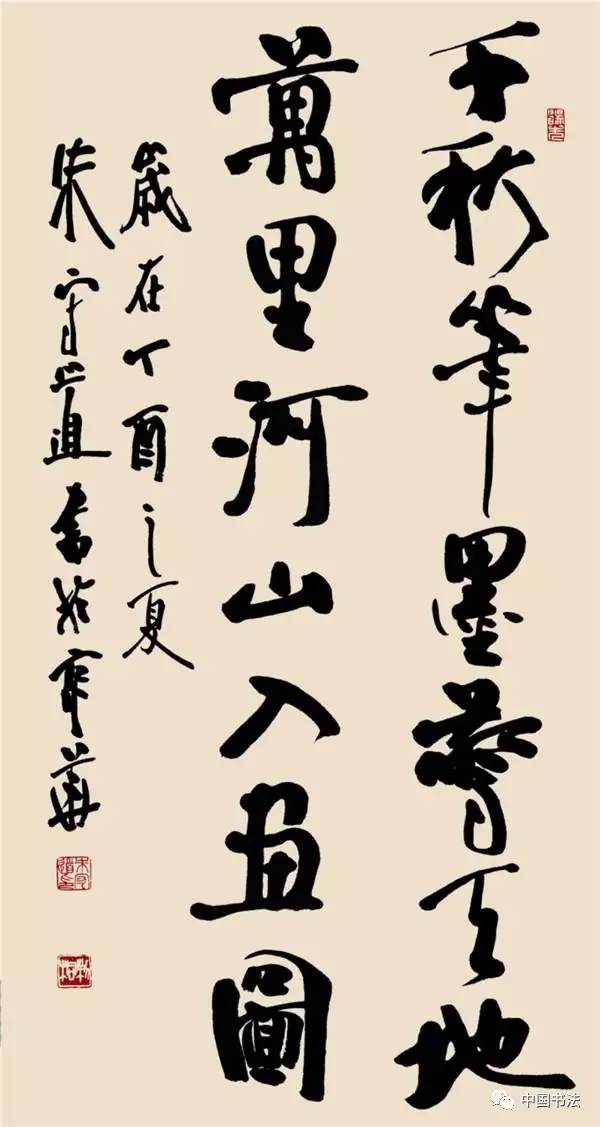 千秋筆墨驚天地
萬里河山入画圖
歲在丁酉之夏
朱守道書於京華
中国书法